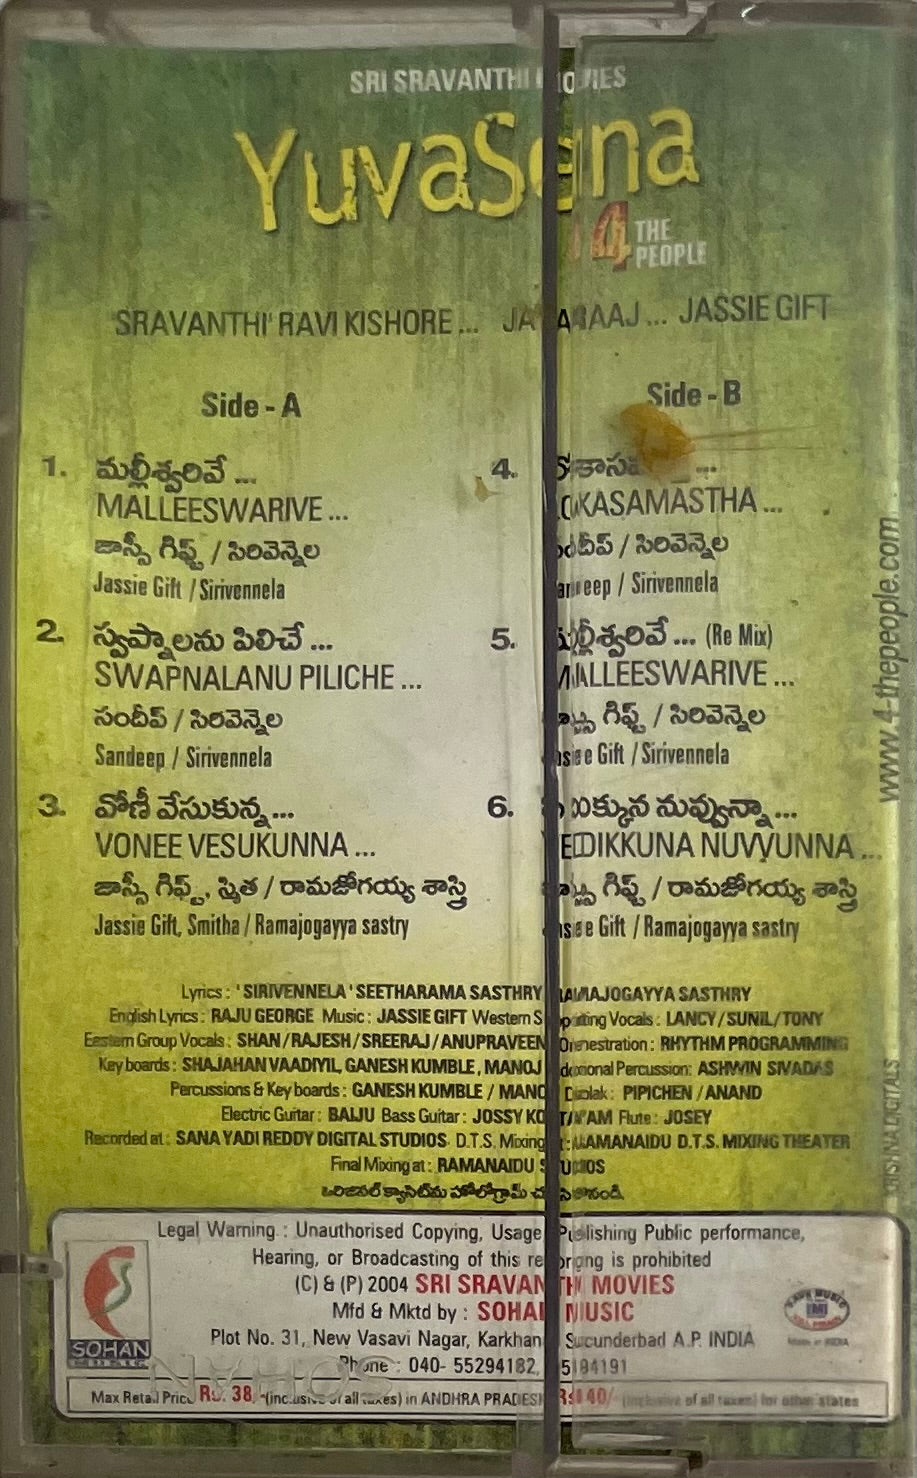 SRI SRAVANTHI MOVIES
YuvaSena
4 THE
PEOPLE
'SRAVANTHI' RAVI KISHORE ... JAYARAAJ ... JASSIE GIFT
Side - A
1. మల్లీశ్వరివే ...
MALLEESWARIVE ...
జాస్సీ గిఫ్ట్ / సిరివెన్నెల
Jassie Gift / Sirivennela
2. స్వప్నాలను పిలిచే ...
SWAPNALANU PILICHE ...
సందీప్ / సిరివెన్నెల
Sandeep / Sirivennela
3. వోణీ వేసుకున్న...
VONEE VESUKUNNA ...
జాస్సీ గిఫ్ట్, స్మిత / రామజోగయ్య శాస్త్రి
Jassie Gift, Smitha / Ramajogayya sastry
Side - B
4. ...
LOKASAMASTHA ...
సందీప్ / సిరివెన్నెల
Sandeep / Sirivennela
5. మల్లీశ్వరివే ... (Re Mix)
MALLEESWARIVE ...
గిఫ్ట్ / సిరివెన్నెల
Gift / Sirivennela
6. నువ్వున్నా...
VEDIKKUNA NUVVUNNA ...
గిఫ్ట్ / రామజోగయ్య శాస్త్రి
Gift / Ramajogayya sastry
www.4-thepeople.com
Lyrics : 'SIRIVENNELA' SEETHARAMA SASTHRY RAMAJOGAYYA SASTHRY
English Lyrics : RAJU GEORGE Music : JASSIE GIFT Western Supporting Vocals : LANCY / SUNIL / TONY
Eastern Group Vocals : SHAN / RAJESH / SREERAJ / ANUPRAVEEN Orchestration : RHYTHM PROGRAMMING
Key boards : SHAJAHAN VAADIYIL, GANESH KUMBLE, MANOJ Additional Percussion: ASHWIN SIVADAS
Percussions & Key boards : GANESH KUMBLE / MANOJ Dholak : PIPICHEN / ANAND
Electric Guitar : BAIJU Bass Guitar : JOSSY Flute : JOSEY
Recorded at : SANA YADI REDDY DIGITAL STUDIOS D.T.S. Mixing at : RAMANAIDU D.T.S. MIXING THEATER
Final Mixing at : RAMANAIDU STUDIOS
ఒరిజినల్ క్యాసెట్‌ను హోలోగ్రామ్ చూసి కొనండి.
KRISHNA DIGITALS
Legal Warning : Unauthorised Copying, Usage Publishing Public performance,
Hearing, or Broadcasting of this recording is prohibited
(C) & (P) 2004 SRI SRAVANTHI MOVIES
Mfd & Mktd by : SOHAN MUSIC
Plot No. 31, New Vasavi Nagar, Karkhana Secunderbad A.P. INDIA
Phone : 040- 55294182, 55184191
SOHAN
MUSIC
Made in INDIA
SOHAN
Max Retail Price Rs. 38/- (inclusive of all taxes) in ANDHRA PRADESH Rs. 40/- (inclusive of all taxes) for other states